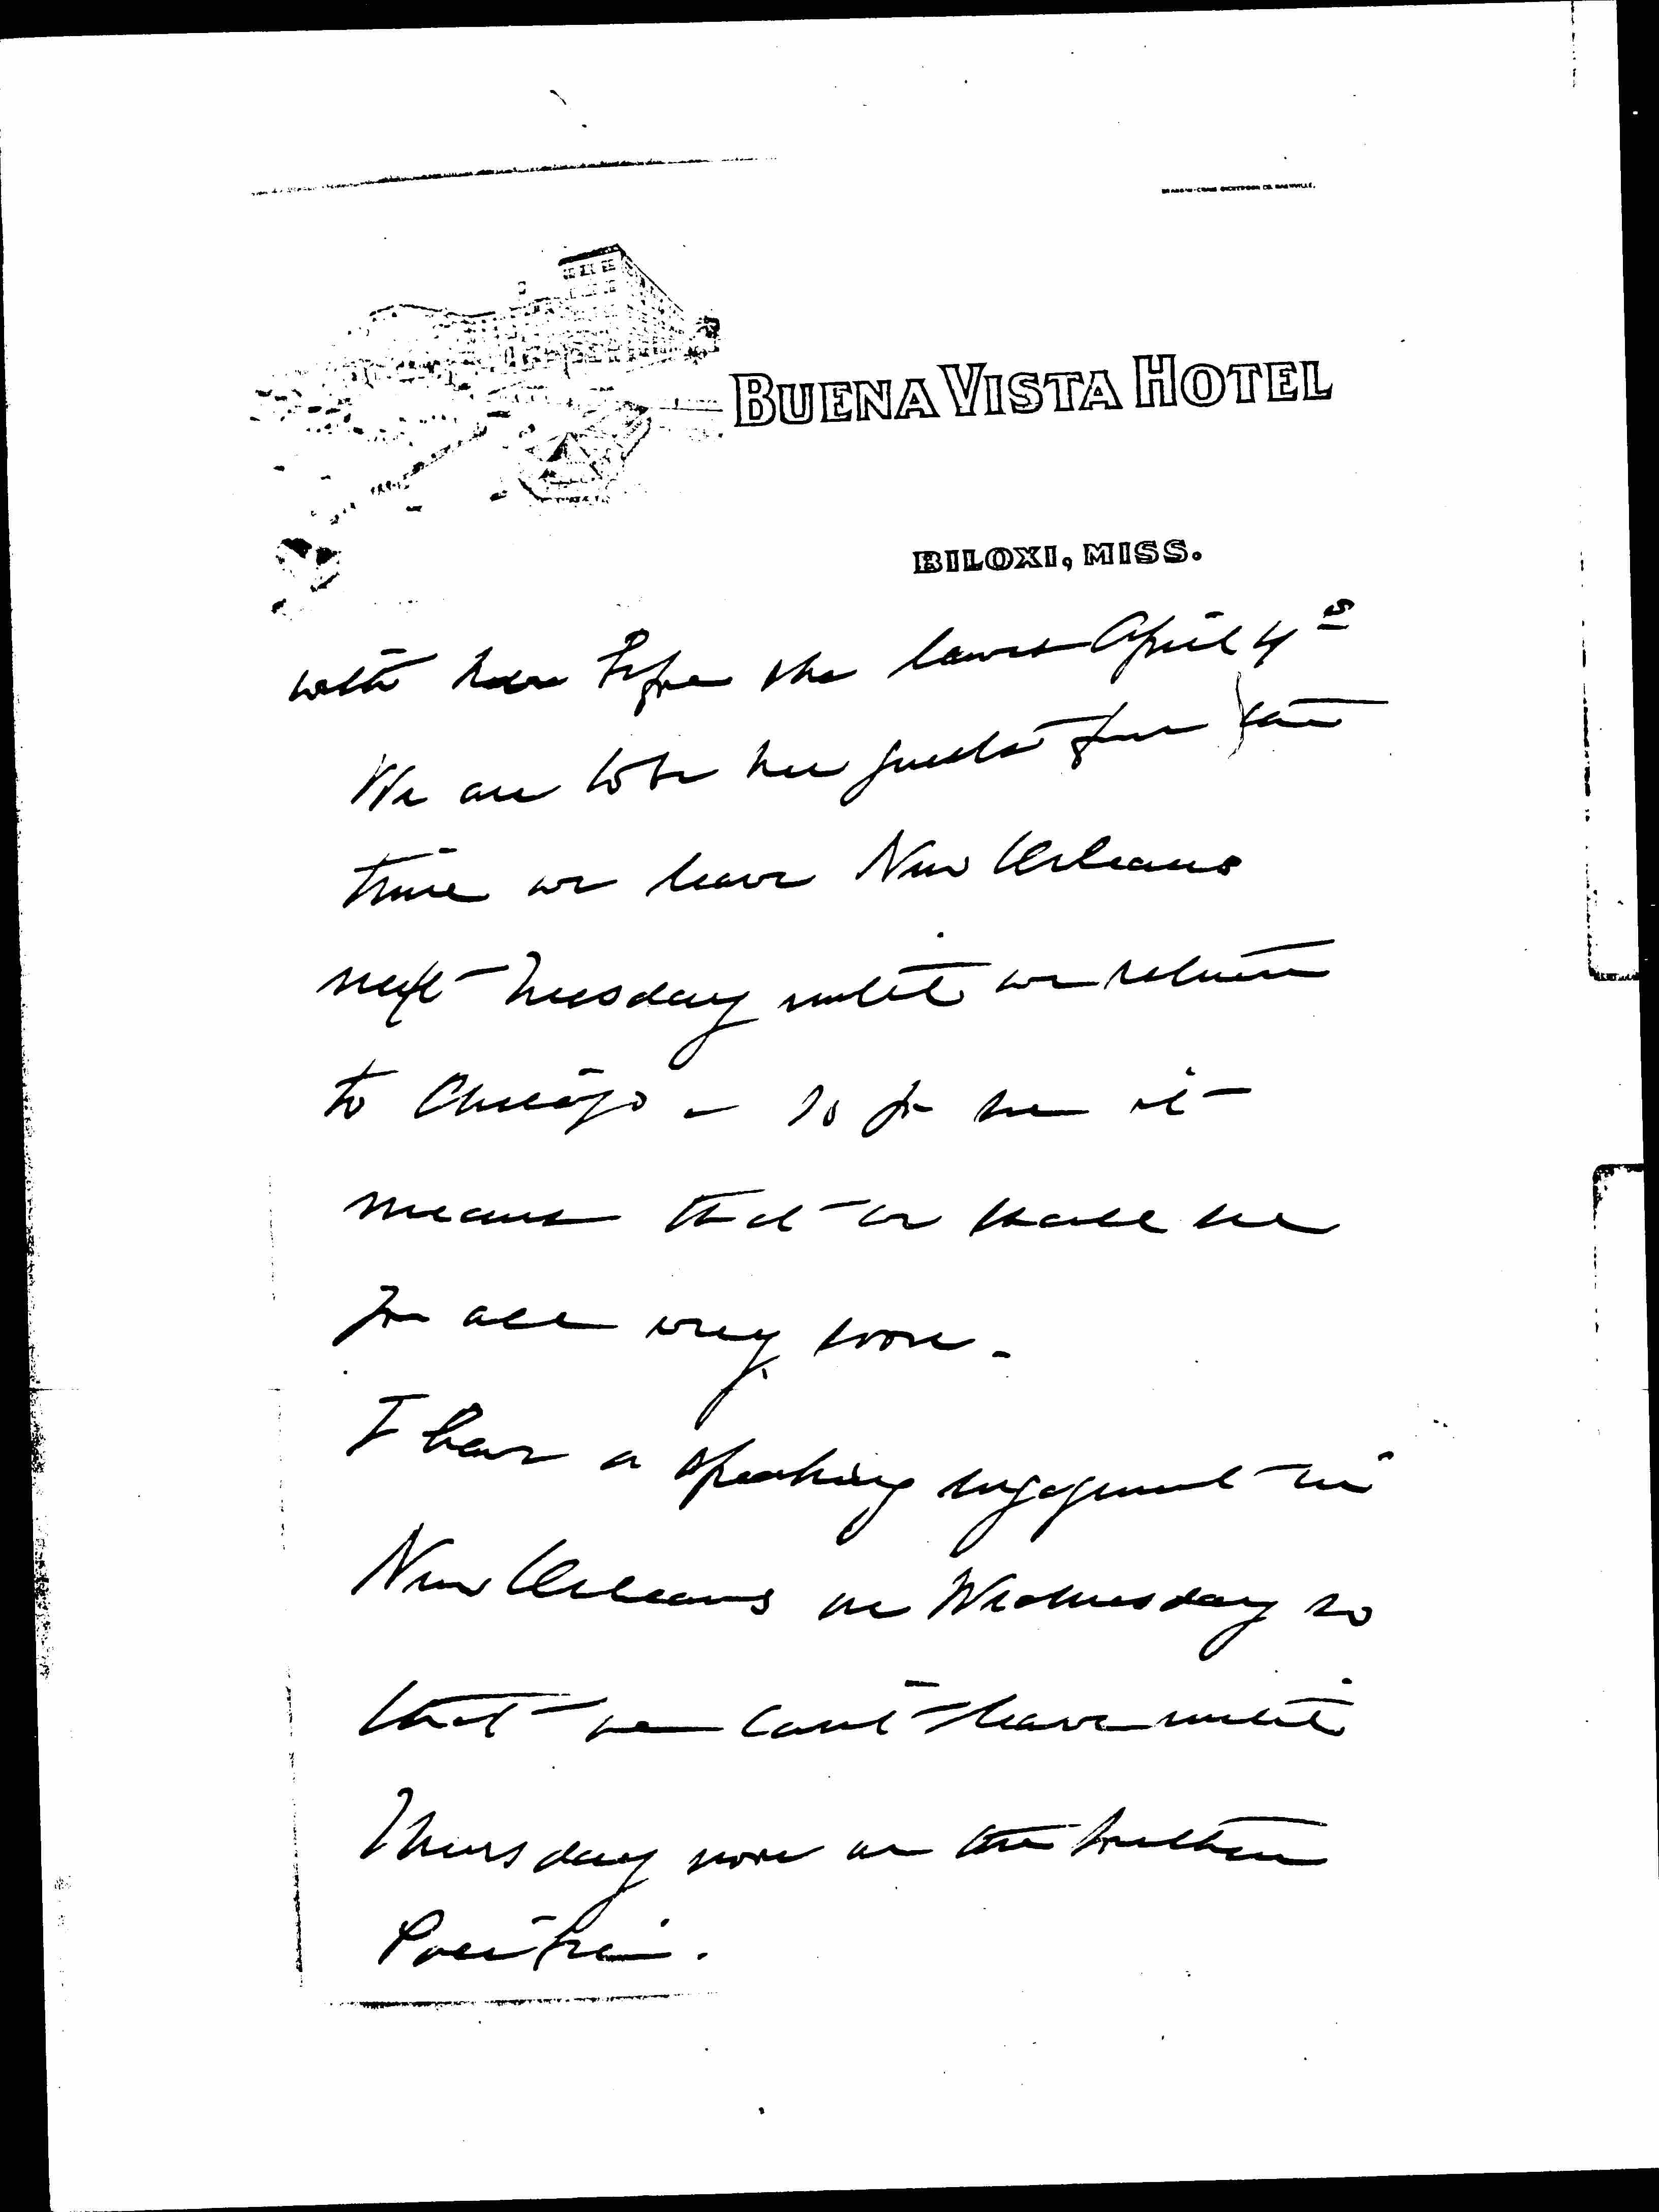 BUENA VISTA HOTEL
BILOXI, MISS.
with her before she leaves April 4
We are to be her guests from the
time we leave New Orleans
next Tuesday until we return
to Chicago - so you see it
means that we shall see
you all very soon.
I have a speaking engagement in
New Orleans on Wednesday so
that we can't leave until
Thursday noon on the Southern
Pacific.